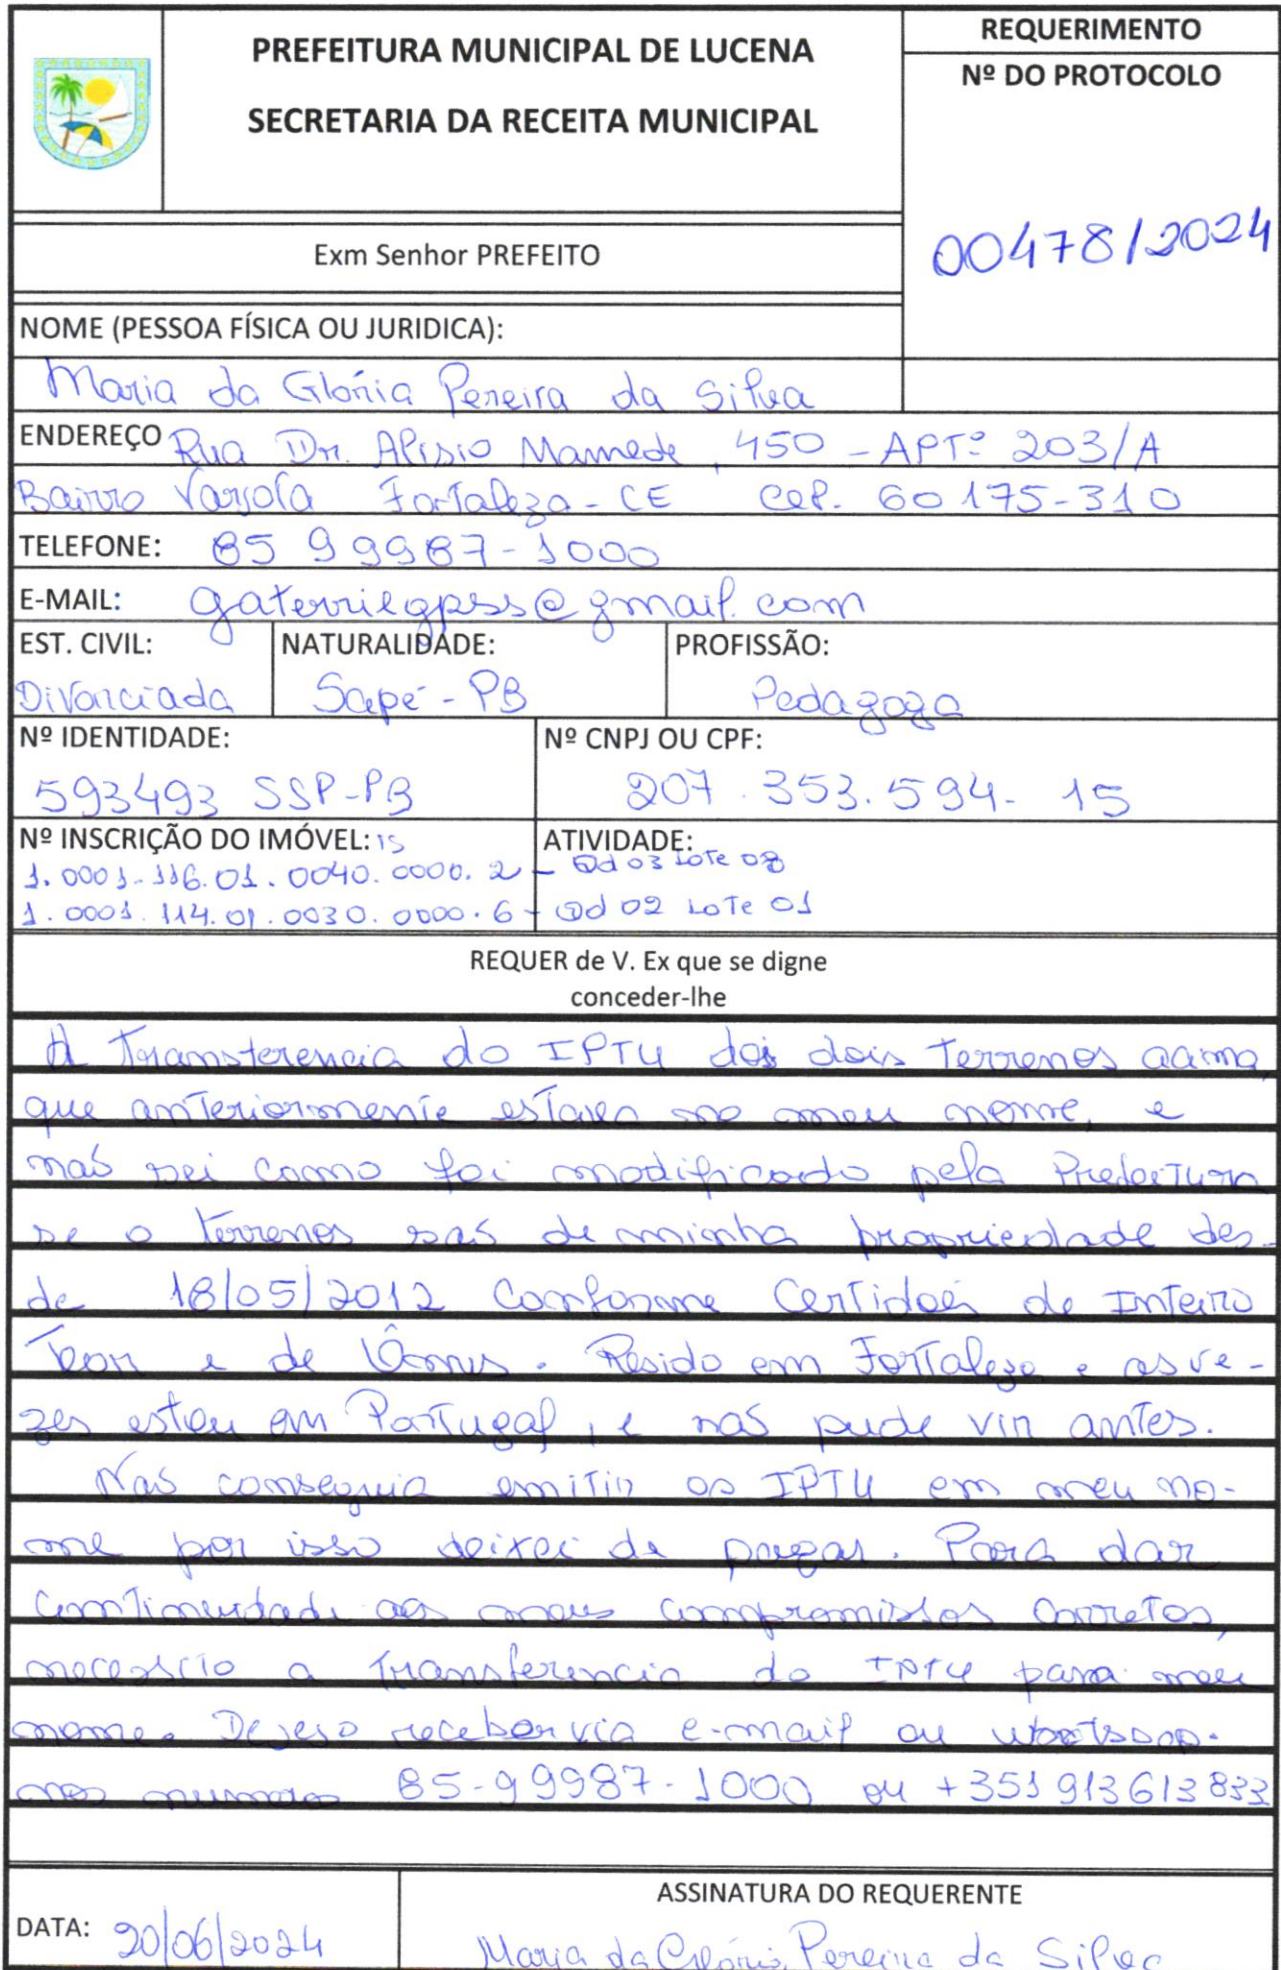 PREFEITURA MUNICIPAL DE LUCENA
SECRETARIA DA RECEITA MUNICIPAL
REQUERIMENTO
Nº DO PROTOCOLO
00478/2024
Exm Senhor PREFEITO
NOME (PESSOA FÍSICA OU JURIDICA):
Maria da Glória Pereira da Silva
ENDEREÇO Rua Dr. Alisio Mamede, 450 - APTº 203/A
Bairro Varjota Fortaleza - CE Cep. 60175-310
TELEFONE: 85 99987-1000
E-MAIL: gaterrilgpss@gmail.com
EST. CIVIL: NATURALIDADE: PROFISSÃO:
Divorciada Sapé - PB Pedagoga
Nº IDENTIDADE: Nº CNPJ OU CPF:
593493 SSP-PB 207.353.594-15
Nº INSCRIÇÃO DO IMÓVEL: is ATIVIDADE:
1.0001.116.01.0040.0000.2 - Qd 03 Lote 08
1.0001.114.01.0030.0000.6 - Qd 02 Lote 01
REQUER de V. Ex que se digne
conceder-lhe
A Transferencia do IPTU dos dois Terrenos acima
que anteriormente estava no meu nome, e
não sei como foi modificado pela Prefeitura
se o terrenos são de minha propriedade des-
de 18/05/2012 Conforme Certidões de Inteiro
Teor e de Ônus. Resido em Fortaleza e as ve-
zes estou em Portugal, e não pude vir antes.
Não conseguia emitir os IPTU em meu no-
me por isso deixei de pagar. Para dar
continuidade aos meus compromissos corretos,
necessito a transferencia do IPTU para meu
nome. Desejo receber via e-mail ou
nos numeros 85-99987-1000 ou +351 913613833
DATA: 20/06/2024
ASSINATURA DO REQUERENTE
Maria da Glória Pereira da Silva